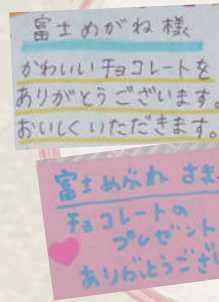 富士めがね様
かわいいチョコレートを
ありがとうございます。
おいしくいただきます。
富士めがね さま
チョコレートの
プレゼント
ありがとうござい